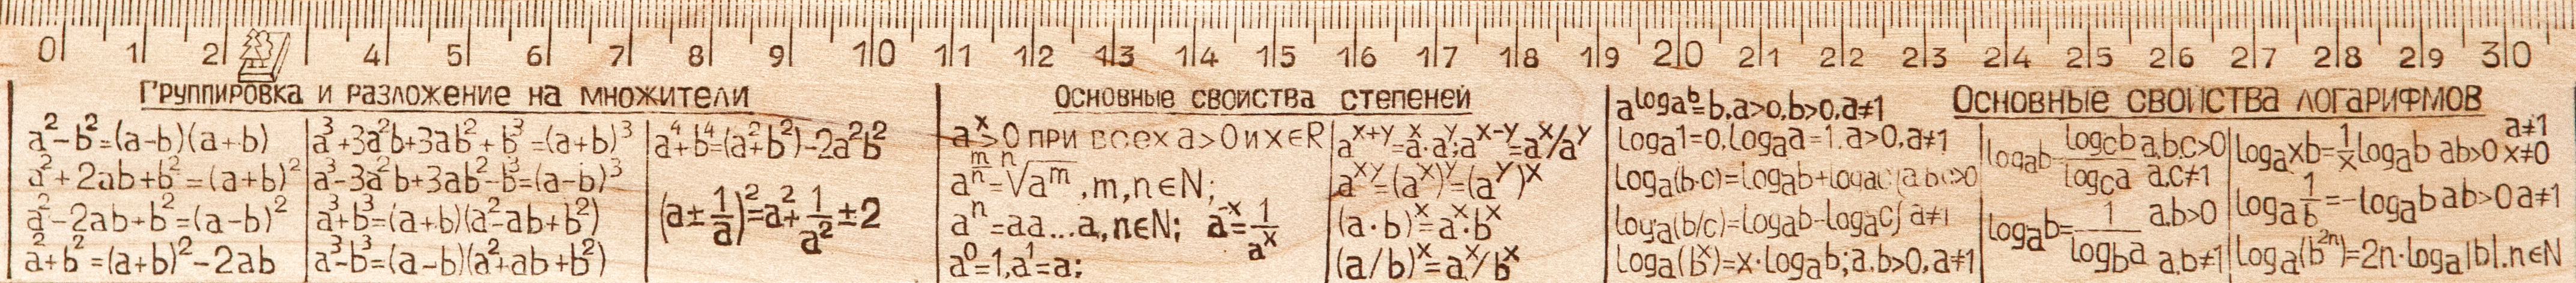 0 1 2 4 5 6 7 8 9 10 11 12 13 14 15 16 17 18 19 20 21 22 23 24 25 26 27 28 29 30
Группировка и разложение на множители
a²-b²=(a-b)(a+b)
a²+2ab+b²=(a+b)²
a²-2ab+b²=(a-b)²
a²+b²=(a+b)²-2ab
a³+3a²b+3ab²+b³=(a+b)³
a³-3a²b+3ab²-b³=(a-b)³
a³+b³=(a+b)(a²-ab+b²)
a³-b³=(a-b)(a²+ab+b²)
a⁴+b⁴=(a²+b²)-2a²b²
(a±1/a)²=a²+1/a²±2
Основные свойства степеней
aˣ>0 при всех a>0 и x∈R
a^(m/n)=ⁿ√aᵐ,m,n∈N;
aⁿ=aa...a,n∈N; a⁻ˣ=1/aˣ
a⁰=1,a¹=a;
aˣ⁺ʸ=aˣ·aʸ;aˣ⁻ʸ=aˣ/aʸ
aˣʸ=(aˣ)ʸ=(aʸ)ˣ
(a·b)ˣ=aˣ·bˣ
(a/b)ˣ=aˣ/bˣ
Основные свойства логарифмов
a^(logₐb)=b,a>0,b>0,a≠1
logₐ1=0,logₐa=1.a>0,a≠1
logₐ(b·c)=logₐb+logₐc(a,b,c>0
logₐ(b/c)=logₐb-logₐc a≠1
logₐ(bˣ)=x·logₐb;a,b>0,a≠1
logₐb=log_c b/log_c a a,b,c>0 a,c≠1
logₐb=1/log_b a a,b>0 a,b≠1
logₐxb=1/x logₐb ab>0 a≠1 x≠0
logₐ1/b=-logₐb ab>0 a≠1
logₐ(b²ⁿ)=2n·logₐ|b|.n∈N